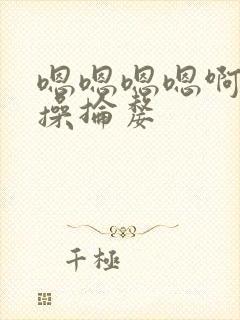 嗯嗯嗯嗯啊
操抡婺
千極